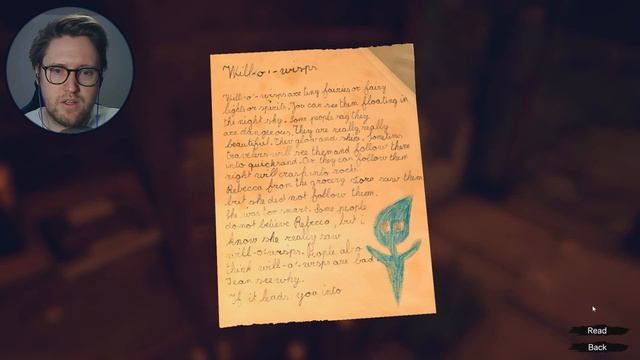 Will-o'-wisps
Will-o'-wisps are tiny fairies or fairy
lights or spirits. You can see them floating in
the night sky. Some people say they
are dangerous. They are really really
beautiful. They glow and shine. Sometimes
travelers will see them and follow them
into quicksand. Or they can follow them
right will crasp into rocks.
Rebecca from the grocery store saw them
but she did not follow them.
She was too smart. Some people
do not believe Rebecca, but i
know she really saw
will-o'-wisps. People also
think will-o'-wisps are bad
I can see why.
If it leads you into
Read
Back